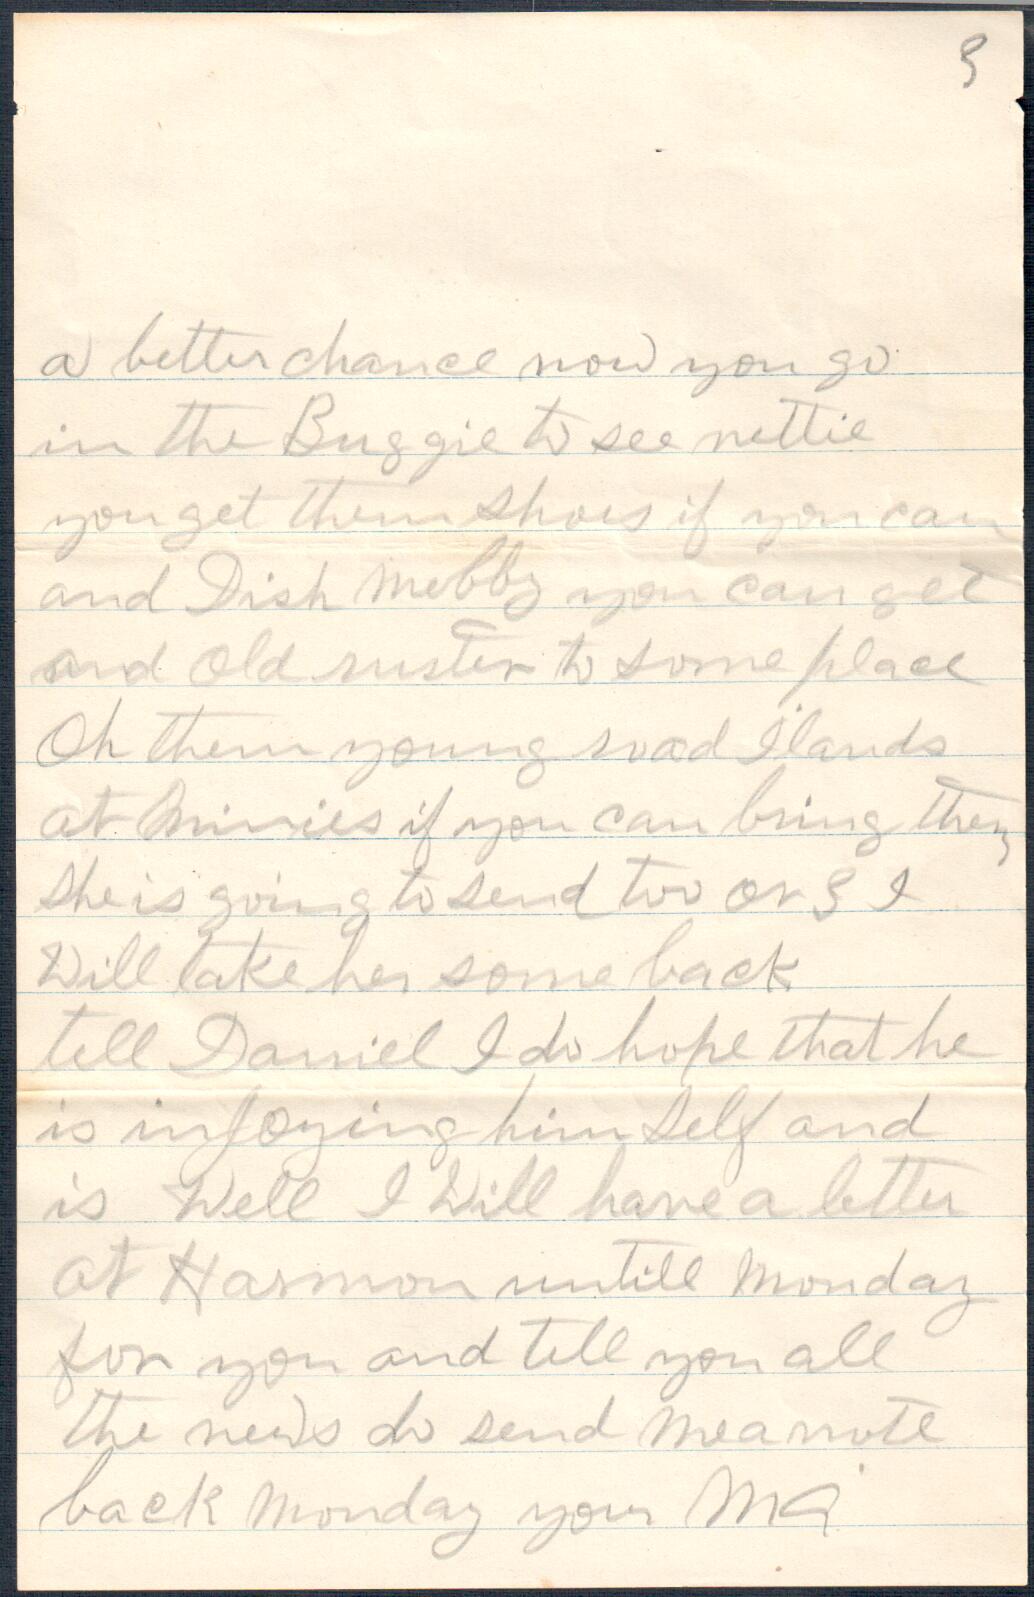 3
a better chance now you go
in the Buggie to see nettie
you get them shoes if you can
and Dish Mebby you can get
and Old ruster to some place
Oh them young road Ilands
at Minnies if you can bring them
she is going to send too or 3 I
Will take her some back
tell Daniel I do hope that he
is injoying him self and
is Well I Will have a letter
at Harmon untill Monday
for you and tell you all
the news do send me a note
back Monday your MA